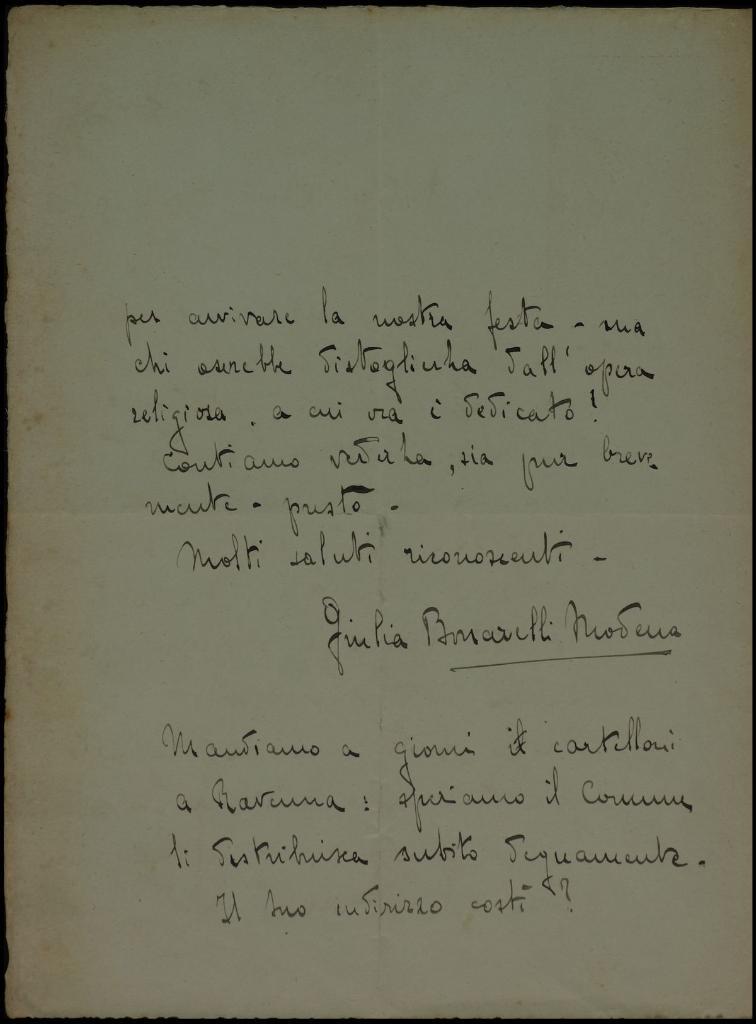 per avvivare la nostra festa - ma
chi oserebbe distoglierla dall' opera
religiosa, a cui ora è dedicato!
Contiamo vederla, sia pur breve
mente - presto -
Molti saluti riconoscenti -
Giulia Bonarelli Modena
Mandiamo a giorni i cartelloni
a Ravenna: speriamo il Comune
li distribuisca subito degnamente.
Il suo indirizzo costì?